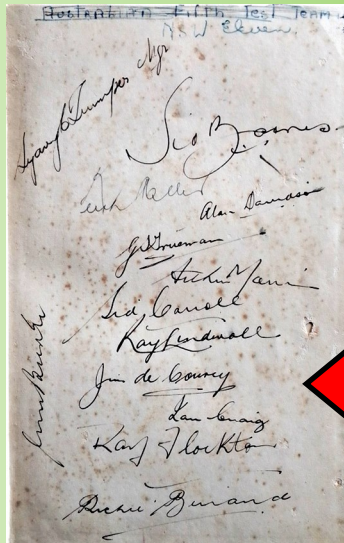 AUSTRALIAN Fifth Test Team
N.S.W Eleven.
Trumper Mgr
Sid Barnes
Keith Miller
Alan Davidson
G Trueman
Arthur Morris
Sid Carroll
Ray Lindwall
Jim de Courcy
Jim Burke
Ian Craig
Ray Flockton
Richie Benaud